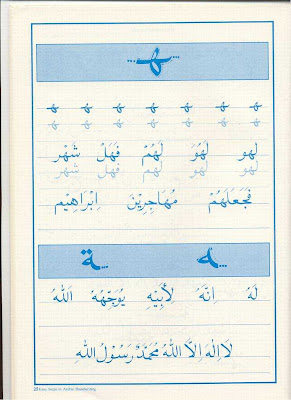 ـهـ
ـهـ ـهـ ـهـ ـهـ ـهـ ـهـ ـهـ
ـهـ ـهـ ـهـ ـهـ ـهـ ـهـ ـهـ
لهو لَهُوَ لَهُمْ فَهَلْ شَهْر
لهو لهو لهم فهل شهر
فَجَعَلَهُمْ مُهَاجِرِيْنَ اِبْرَاهِيْم
ـه ـة
لَهُ اِنَّهُ لِاَبِيْهِ يُوَجِّهْهُ اَللهُ
لَا اِلٰهَ اِلَّا اللهُ مُحَمَّدٌ رَسُوْلُ اللهِ
25 Easy Steps in Arabic Handwriting